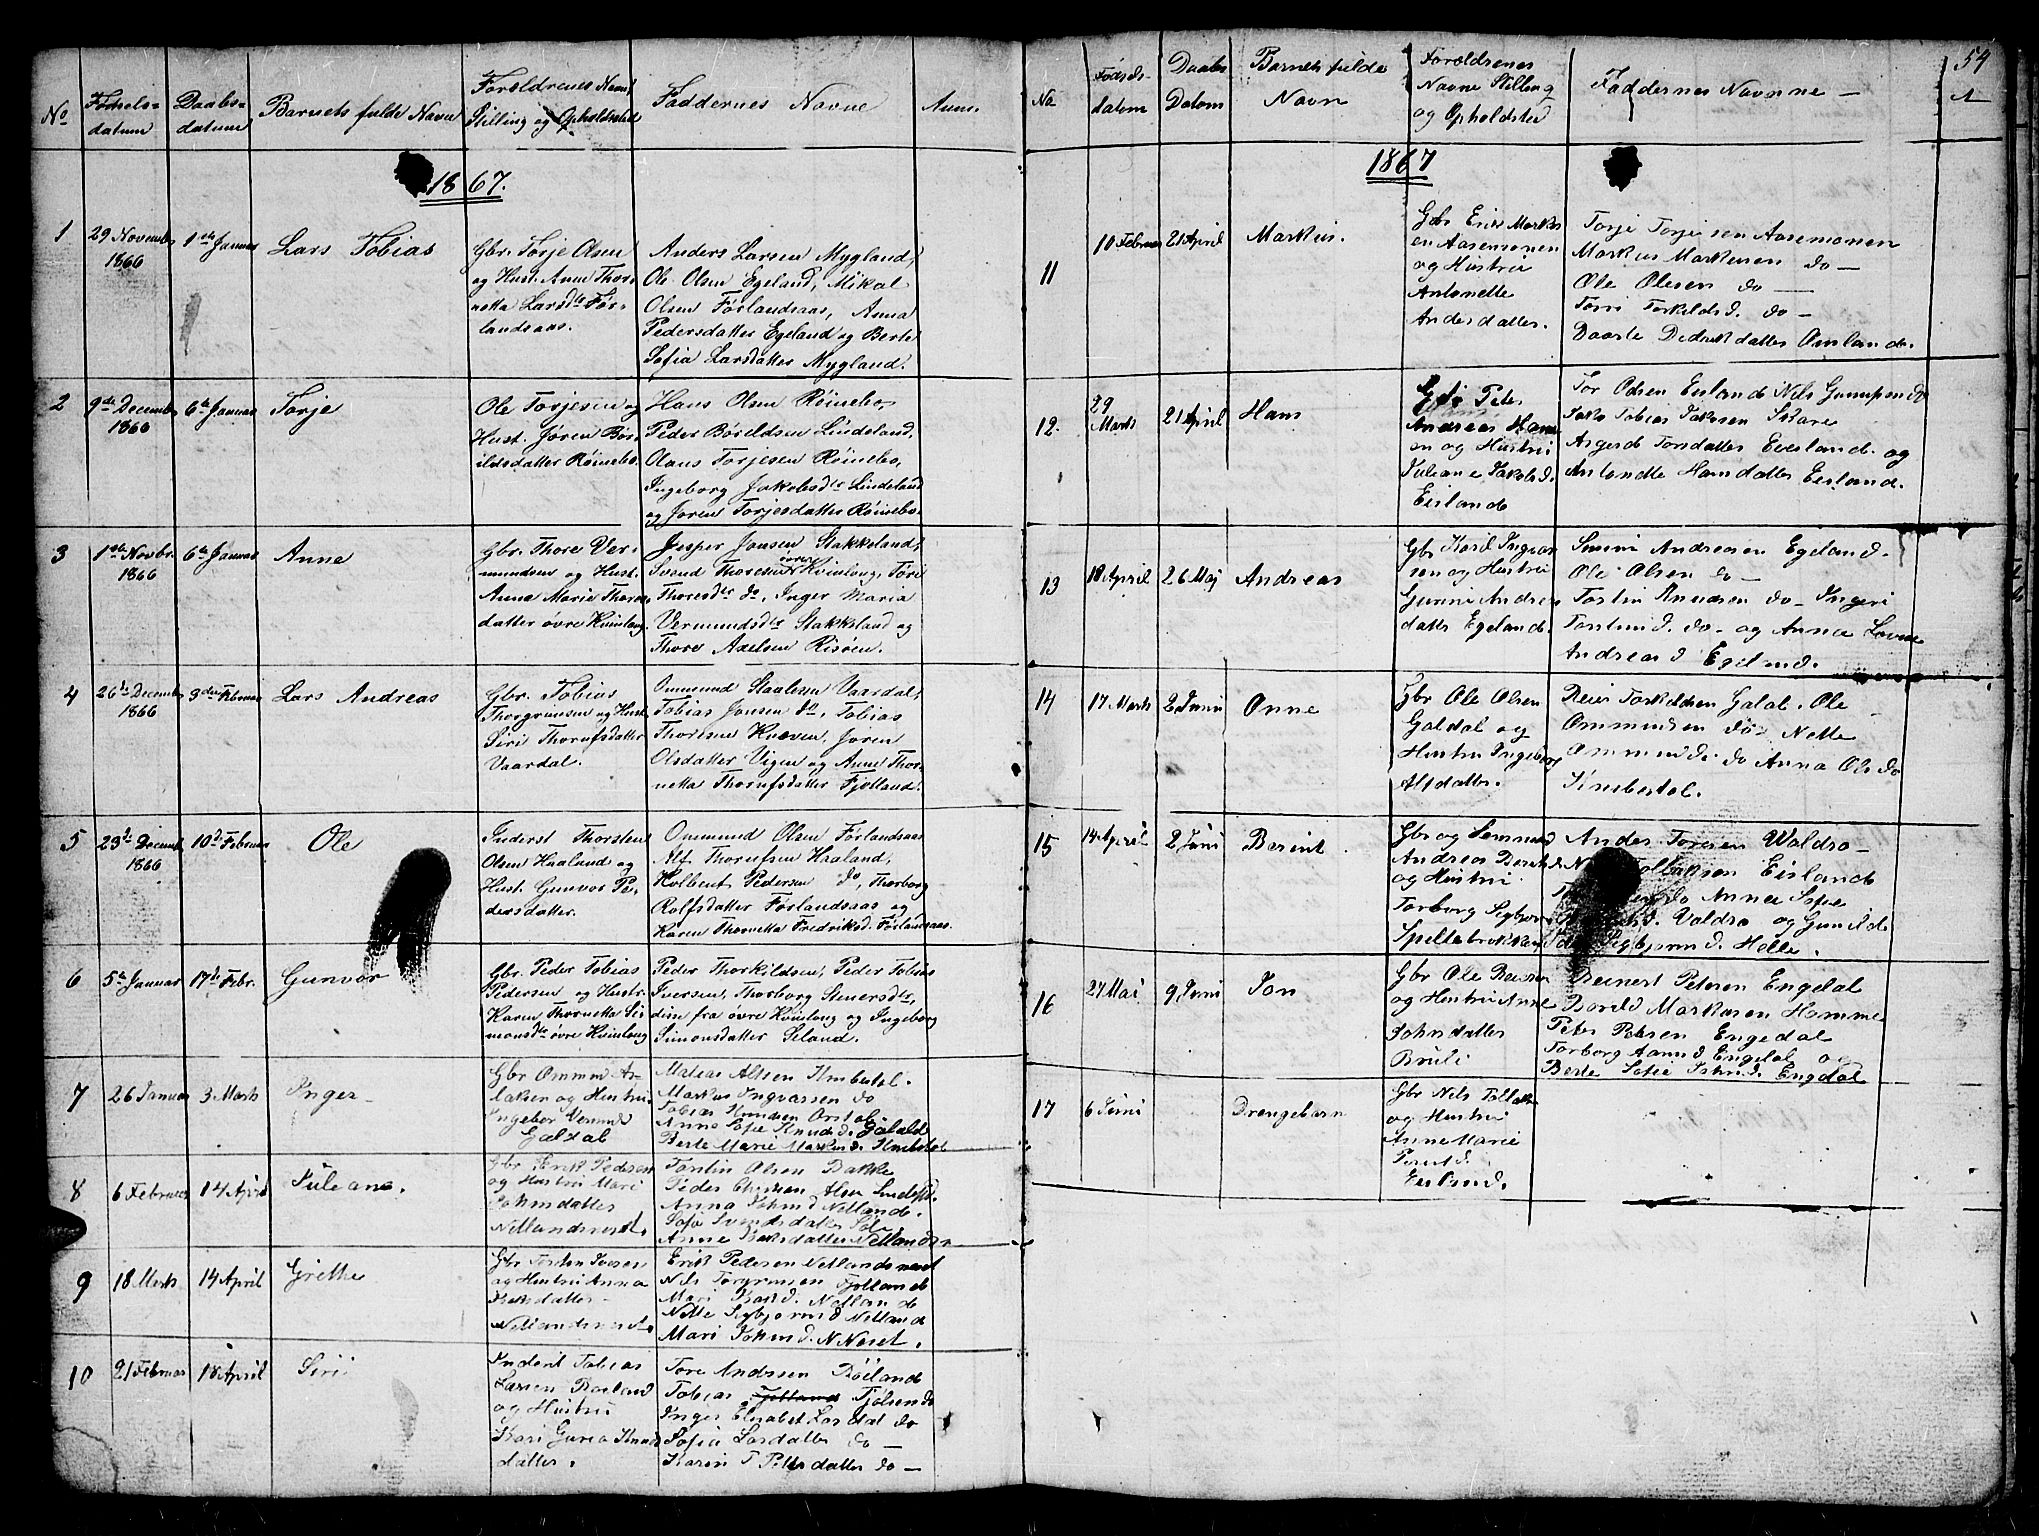 No
Fødsels-
datum
Daabs-
datum
Barnets fulde Navn
Forældrenes Navn
Stilling og Opholdssted
Faddernes Navne
Anm.
1867.
1
29 Novembr
1866
1ste Januar
Lars Tobias
Gbr. Torje Olsen
og Hust. Anne Thor-
netta Larsdtr Før-
landsaas.
Anders Larsen Mygland,
Ole Olsen Egeland, Mikal
Olsen Førlandsaas, Anna
Pedersdatter Egeland og Berte
Sofia Larsdatter Mygland.
2
9de Decembr
1866
6te Januar
Torje
Ole Torjesen og
Hust. Jøren Bør-
ildsdatter Røinebo.
Hans Olsen Røinebo,
Peder Børildsen Lindeland,
Olaus Torjesen Røinebo,
Ingeborg Jakobsdtr Lindeland
og Joren Torjesdatter Røinebo.
3
1ste Novbr.
1866
6te Januar
Anne
Gbr. Thore Ver-
mundsen og Hust.
Anna Marie Thores-
datter øvre Kvinlong.
Jesper Jonsen Stakkeland,
Svend Thoresen øvre Kvinlong, Tori
Thoresdtr do, Inger Maria
Vermundsdtr Stakkeland og
Thore Axelsen Risøen.
4
26de Decembr
1866
3die Februar
Lars Andreas
Gbr. Tobias
Thorgrimsen og Hust.
Siri Thorufsdatter
Vaardal.
Ommund Staalesen Vaardal,
Tobias Jonsen do, Tobias
Thoresen Kvæven, Joren
Olsdatter Vigen og Anne Thor-
netta Thorufsdatter Fjotland.
5
23de Decembr
1866
10de Februar
Ole
Inderst Thorsten
Olsen Haaland og
Hust. Gunvor Pe-
dersdatter.
Ommund Olsen Førlandsaas
Alf Thorufsen Haaland,
Kolbent Pedersen do, Thorborg
Rolfsdatter Førlandsaas og
Karen Thornetta Fredriksd. Førlandsaas.
6
5te Januar
17de Febr.
Gunvor
Gbr. Peder Tobias
Pedersen og Hustr.
Karen Thornetta Si-
monsdtr øvre Kvinlong
Peder Thorkildsen, Peder Tobias
Iversen, Thorborg Simersdtr,
dem fra øvre Kvinlong og Ingeborg
Simonsdatter Seland.
7
26 Januar
3 Marts
Inger
Gbr Ommun As-
laksen og Hustrui
Ingebor Vermund
Galdal
Matias Alfsen Knibestøl.
Markus Ingvarsen do
Tobias Knudsen
Anne Sofie Knudsd. Galdal
Berte Marie Markusd. Knibestøl
8
6 Februar
14 April
Juleane.
Gbr. Erik Pedersen
og Hustrui Mari
Johnsdatter
Netlandsneset.
Tostin Olsen Bakke
Peder
Anna Johnsd Netland.
Sofie Svendsdatter
Anne Netlandsn
9
18 Marts
14 April
Grethe
Gbr Torsten Iversen
og Hustrui Anna
datter
Netlandsneset.
Erik Pedersen Netlandsneset
Nils Torgrimsen Fjotland
Mari Netland
Nette Sigbjornsd Netland
Mari Johnsd. N. Neset.
10
21 Februar
18 April
Siri
Inderst Tobias
Larsen Røiland
og Hustrui
Kari Gurea Knuds
datter.
Tore Andersen Røiland
Tobias Fjotland Tjølsen do
Inger Elisabet Larsdat do
Sofia Larsdatter do —
Karin T Pettersdatter do —
54
No
Fødsels-
datom
Daabs
Datom
Barnets fulde
Navn
Forældrenes
Navne Stilling
og Opholdsted
Faddernes Navnne —
A
1867
11
10 Februar
21 April
Markus.
Gbr Erik Markus
en Aasemonen
og Hustrui
Antonette
Andersdatter.
Torje Torjesen Aasemonen
Markus Markusen do —
Ole Olesen do —
Torri Torkildsd. do —
Daarte Dedrekdatter Omland.
12.
29
Marts
21 April
Hans
Gbr Peter
Andreas Hans
en og Hustrui
Juliane Jakobsd.
Eisland
Tor Odsen Eisland Nils do
Tobias Jakobsen Skare
Asgerd Torsdatter Eisland. og
Antonette Hansdatter Eisland.
13
18 April
26 Maj
Andreas
Gbr Karl Ingvar
sen og Hustrui
Gunni Andreas
datter Egeland.
Simen Andreasen Egeland.
Ole Olsen do —
Tostin Knudsen do — Ingeri
Tostensd. do — og Anna Lovise
Andreasd Egeland.
14
17 Marts
2 Juni
Onne
Gbr Ole Olsen
Galdal og
Hustrui Ingeborg
Alfsdatter.
Reier Torkildsen Galdal. Ole
Ommundsen do Nette
Ommundsd. do Anna Olsd do
Knibestøl.
15
14 April
2 Juni
Berint
Gbr og
Andreas Berntsd.
og Hustrui
Torborg Sigbjørns
Anders Toresen Valdra —
Eisland
do Anne Sofie
Valdra og Gunild
Sigbjørnsd. Helle.
16
27 Mai
9 Juni
Jon
Gbr Ole Bersen
og Hustrui Anne
Johnsdatter
Bruli
Reinert Petersen Engedal
Borild Markusen Homme
Peter Petersen Engedal
Torborg Aamsd Engedal og
Berte Sofie Johnsd. Engdal
17
6 Juni
Drengebarn
Gbr Nils Tollak
og Hustrui
Anne Marie
Torsd.
Eisland.